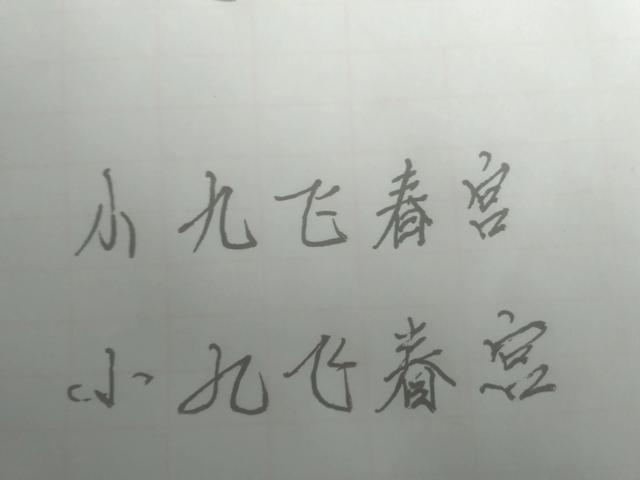 小九飞春宫
小九飞春宫